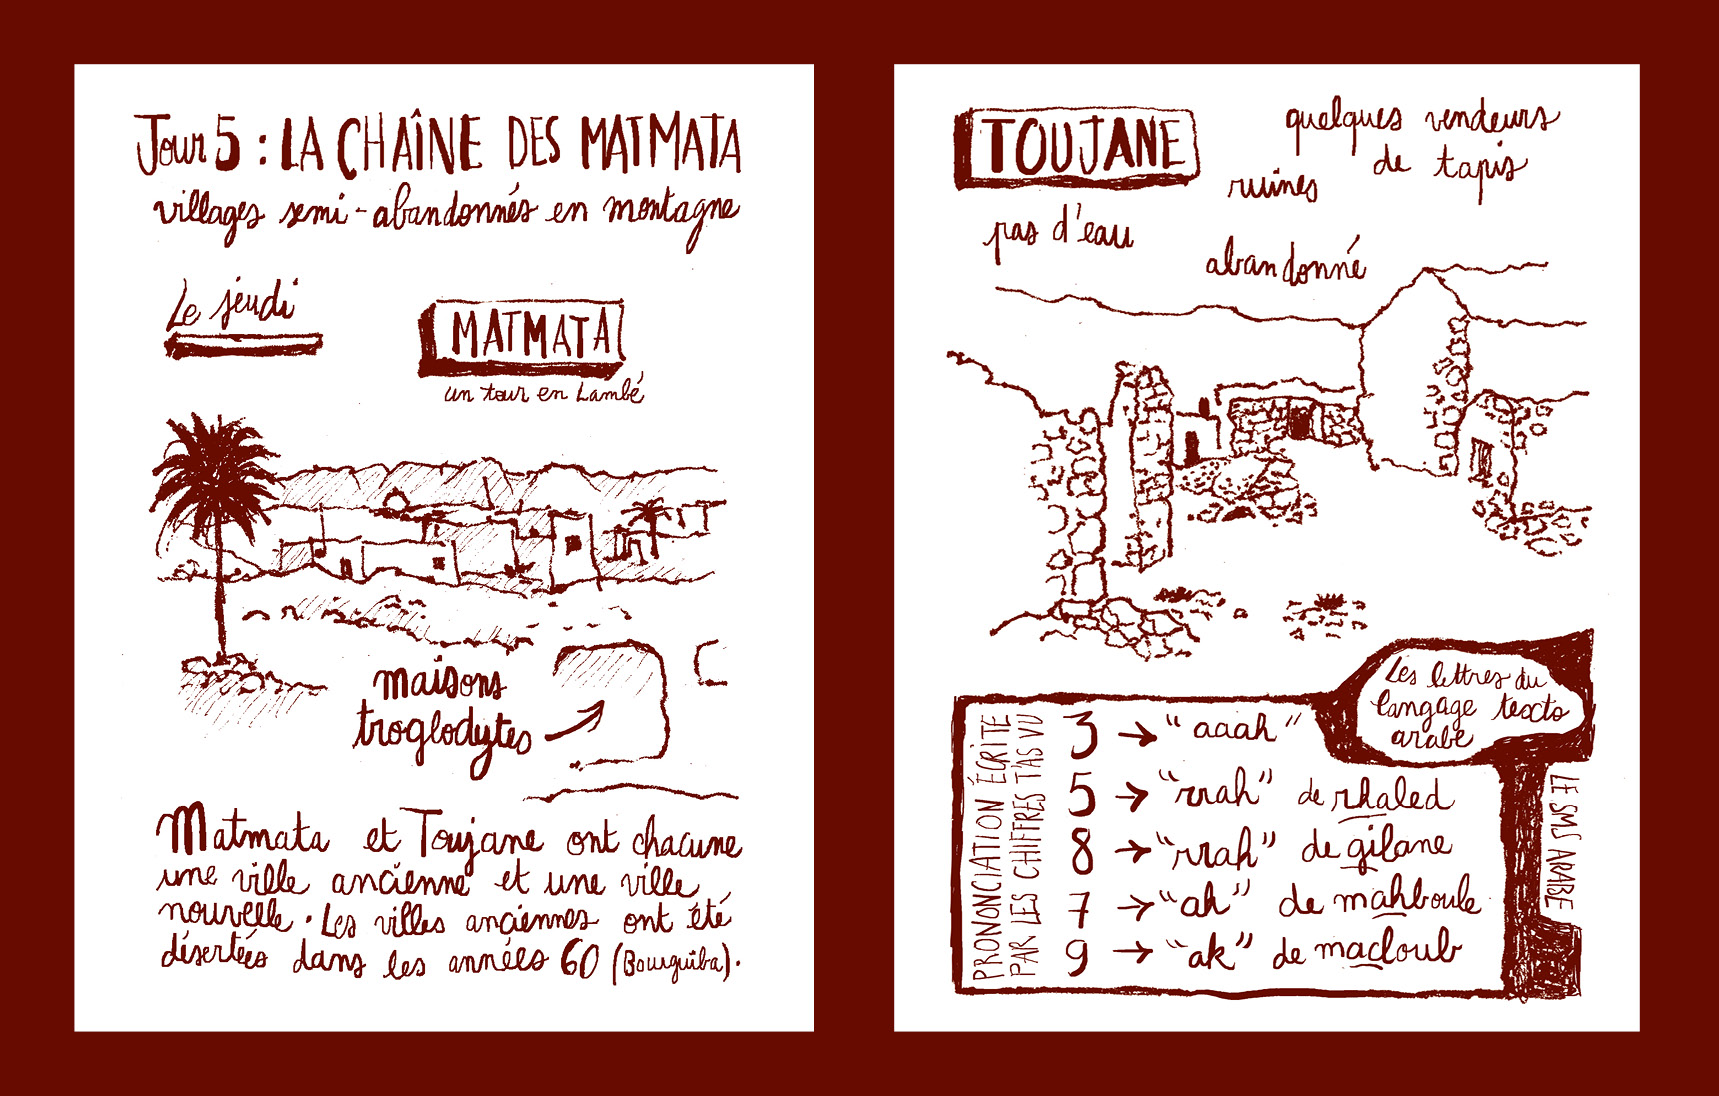 Jour 5 : LA CHAÎNE DES MATMATA
villages semi-abandonnés en montagne
Le jeudi
MATMATA
un tour en Lambé
maisons
troglodytes
Matmata et Toujane ont chacune
une ville ancienne et une ville
nouvelle. Les villes anciennes ont été
désertées dans les années 60 (Bourguiba).
TOUJANE
quelques vendeurs
de tapis
ruines
pas d'eau
abandonné
Les lettres du
langage texto
arabe
PRONONCIATION ÉCRITE
PAR LES CHIFFRES T'AS VU
3 → "aaah"
5 → "rrah" de rhaled
8 → "rrah" de gilane
7 → "ah" de mahboule
9 → "ak" de macloub
LE SMS ARABE